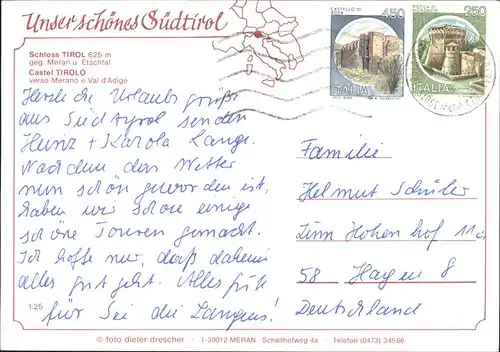 Unser schönes Südtirol
Schloss TIROL 625 m
geg. Meran u. Etschtal
Castel TIROLO
verso Merano e Val d'Adige
Herzliche Urlaubsgrüße
aus Südtyrol senden
Heinz + Karola Lange.
Nachdem das Wetter
nun schön geworden ist,
haben wir schon einige
schöne Touren gemacht.
Ich hoffe nur, daß daheim
alles gut geht. Alles gute
für Sie die Langens!
1.25
CASTELLO DI
450
ITALIA
ROCCA DI
250
ITALIA
Familie
Helmut Schüler
Zum Hohenhof 11c
58 Hagen 8
Deutschland
© foto dieter drescher - I-39012 MERAN Schallhofweg 4a - Telefon (0473) 34566